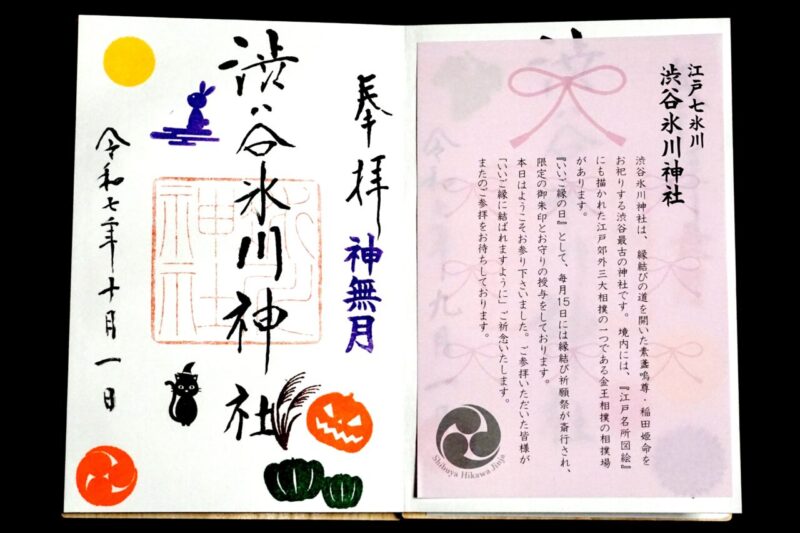 奉拝
神無月
渋谷氷川神社
令和七年十月一日
江戸七氷川
渋谷氷川神社
渋谷氷川神社は、縁結びの道を開いた素盞嗚尊・稲田姫命を
お祀りする渋谷最古の神社です。境内には、『江戸名所図絵』
にも描かれた江戸郊外三大相撲の一つである金王相撲の相撲場
があります。
『いいご縁の日』として、毎月15日には縁結び祈願祭が斎行され、
限定の御朱印とお守りの授与をしております。
本日はようこそお参り下さいました。ご参拝いただいた皆様が
「いいご縁に結ばれますように」ご祈念いたします。
またのご参拝をお待ちしております。
Shibuya Hikawa Jinja